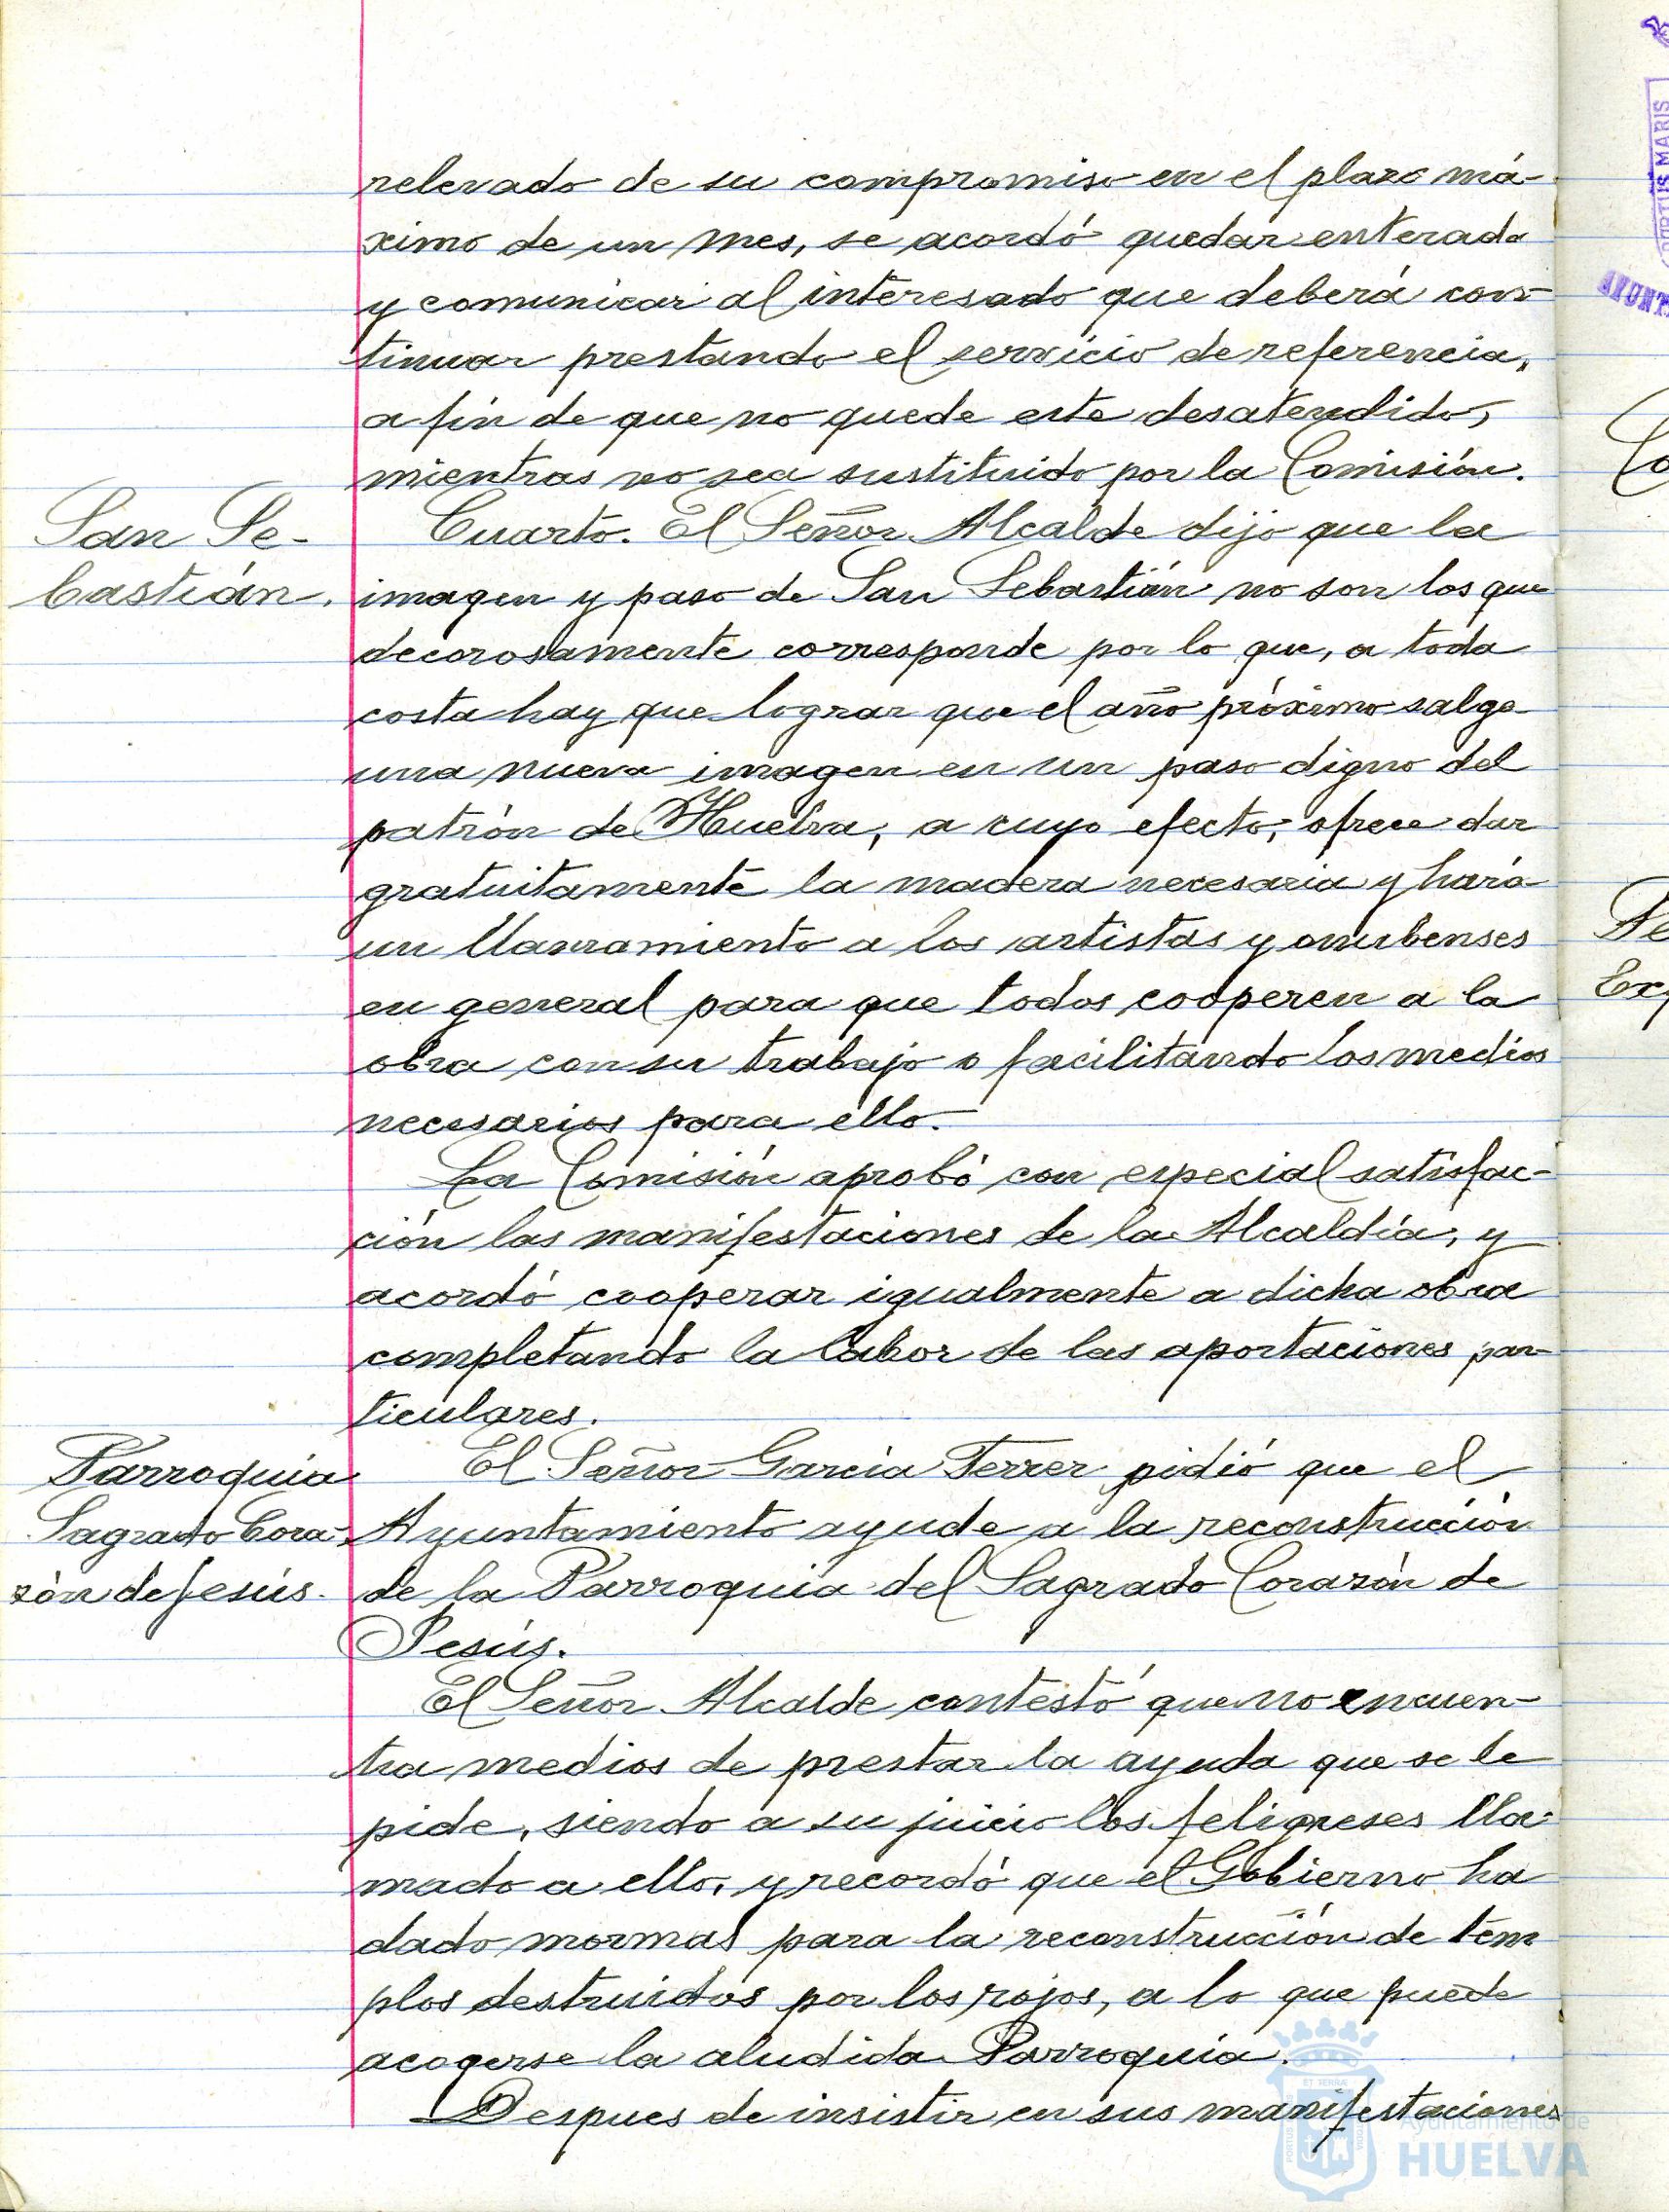 relevado de su compromiso en el plazo má-
ximo de un mes, se acordó quedar enterada
y comunicar al interesado que deberá con-
tinuar prestando el servicio de referencia,
a fin de que no quede este desatendido,
mientras no sea sustituido por la Comisión.
San Se-
bastián.
Cuarto. El Señor Alcalde dijo que la
imagen y paso de San Sebastián no son los que
decorosamente corresponde por lo que, a toda
costa hay que lograr que el año próximo salga
una nueva imagen en un paso digno del
patrón de Huelva, a cuyo efecto, ofrece dar
gratuitamente la madera necesaria y hará
un llamamiento a los artistas y onubenses
en general para que todos cooperen a la
obra con su trabajo o facilitando los medios
necesarios para ello.
La Comisión aprobó con especial satisfac-
ción las manifestaciones de la Alcaldía, y
acordó cooperar igualmente a dicha obra
completando la labor de las aportaciones par-
ticulares.
Parroquia
Sagrado Cora-
zón de Jesús.
El Señor García Ferrer pidió que el
Ayuntamiento ayude a la reconstrucción
de la Parroquia del Sagrado Corazón de
Jesús.
El Señor Alcalde contestó que no encuen-
tra medios de prestar la ayuda que se le
pide, siendo a su juicio los feligreses lla-
mado a ello, y recordó que el Gobierno ha
dado mormas para la reconstrucción de tem
plos destruidos por los rojos, a lo que puede
acogerse la aludida Parroquia.
Despues de insistir en sus manifestaciones
Ayuntamiento de
HUELVA